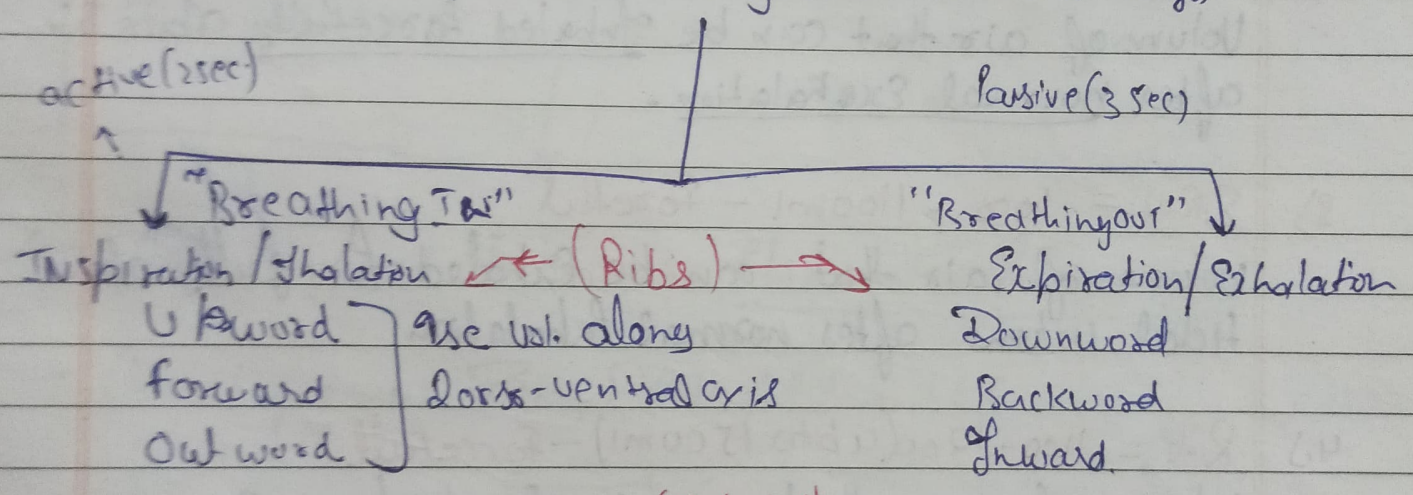 active(2sec)
Passive(3 sec)
"Breathing In"
"Breathing out"
Inspiration/Ihalation
(Ribs)
Expiration/Exhalation
Upword
vol. along
Downword
forward
Dorso-ventral axis
Backword
Outword
Inward